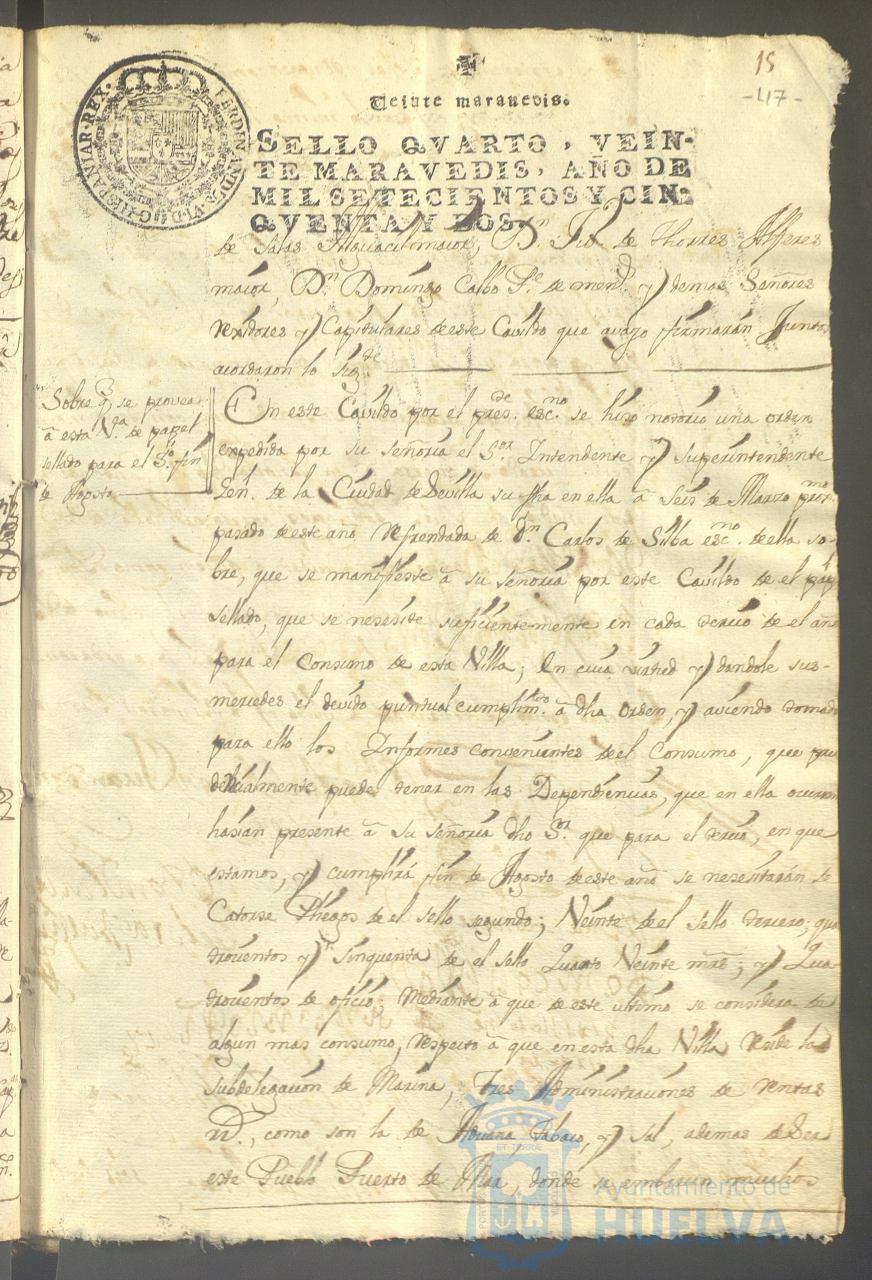 15
-47-
Veinte maravedis.
FERDINANDUS·VI·D·G·HISPANIAR·REX·
SELLO QVARTO, VEIN-
TE MARAVEDIS, AÑO DE
MIL SETECIENTOS Y CIN-
QVENTA Y DOS.
de Salas Alguacil maior, Dn. de Thorres Alferes
maior, Dn Domingo Calbo y demas Señores
rexidores y Capitulares de este Cavildo que avajo firmarán Juntos
acordaron lo sigte
Sobre q se provea
â esta Va. de papel
sellado para el fin
de Agosto
En este Cavildo por el preste. escno. se hiso notorio una orden
expedida por su señoria el Sor Intendente y Superintendente
Genl. de la Ciudad de Sevilla su fha en ella â Seis de Marzo
pasado de este año refrendada de Dn Carlos de Silba escno. de ella so-
bre, que se manifieste â su señoria por este Cavildo de el pap
sellado, que se nesesite suficientemente en cada tercio de el año
para el Consumo de esta Villa; En cuia virtud y dandole sus
mercedes el devido puntual cumplimto. â dha orden, y aviendo tomado
para ello los Informes convenientes de el Consumo, que pru
dencialmente puede tener en las Dependiencias, que en ella ocurren
hasian presente â su señoria dho Sor que para el tercio, en que
estamos, y cumplirá fin de Agosto de este año se nesesitarán de
Catorse Pliegos de el sello segundo; Veinte de el sello tercero; qua
trocientos y sinquenta de el sello Quarto Veinte mrs; y Qua
trocientos de oficio; Mediante â que de este ultimo se considera de
algun mas consumo, respecto â que en esta dha Villa reside la
subdelegacion de Marina, Tres Administraciones de rentas
Rs., como son la de Aduana Tabaco, y Sal, ademas de Ser
este Pueblo Puerto de Mar, donde se embarcan muchos
Ayuntamiento de
HUELVA